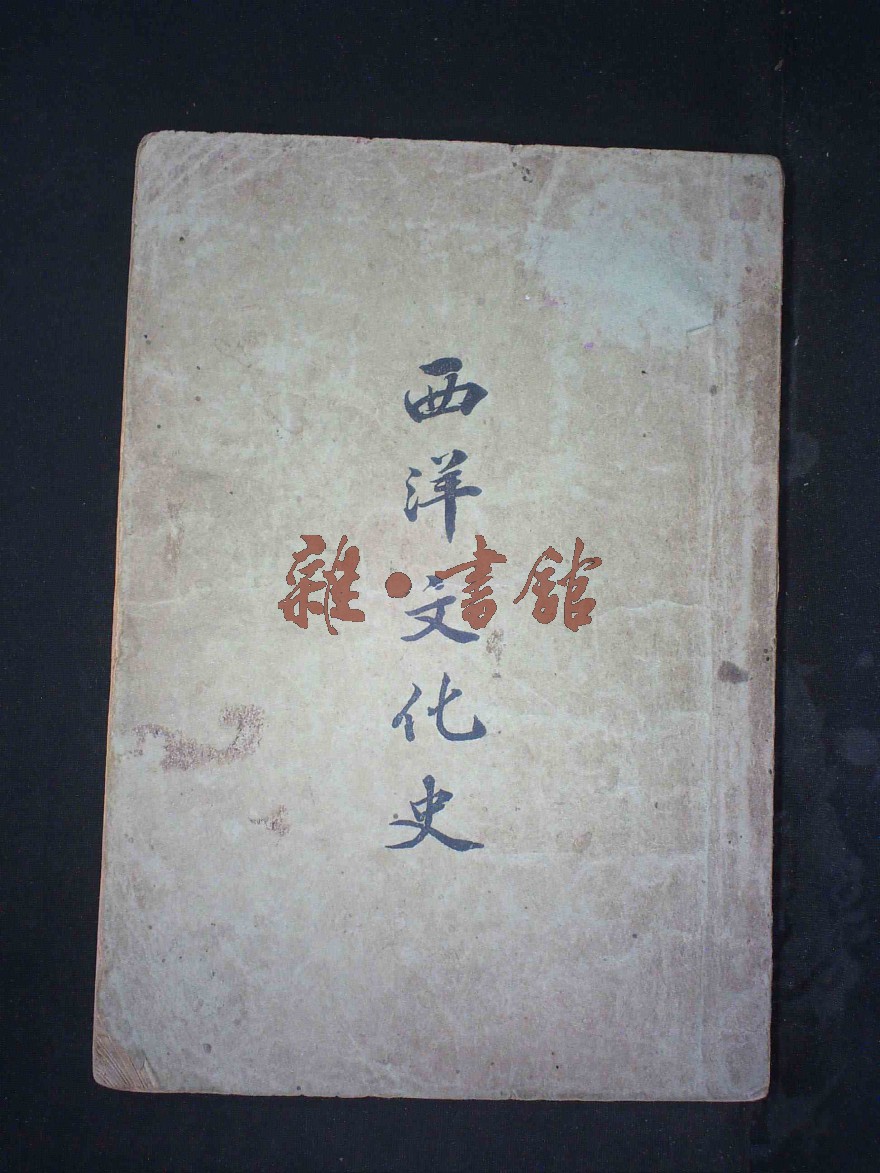 西洋文化史
雜·書館